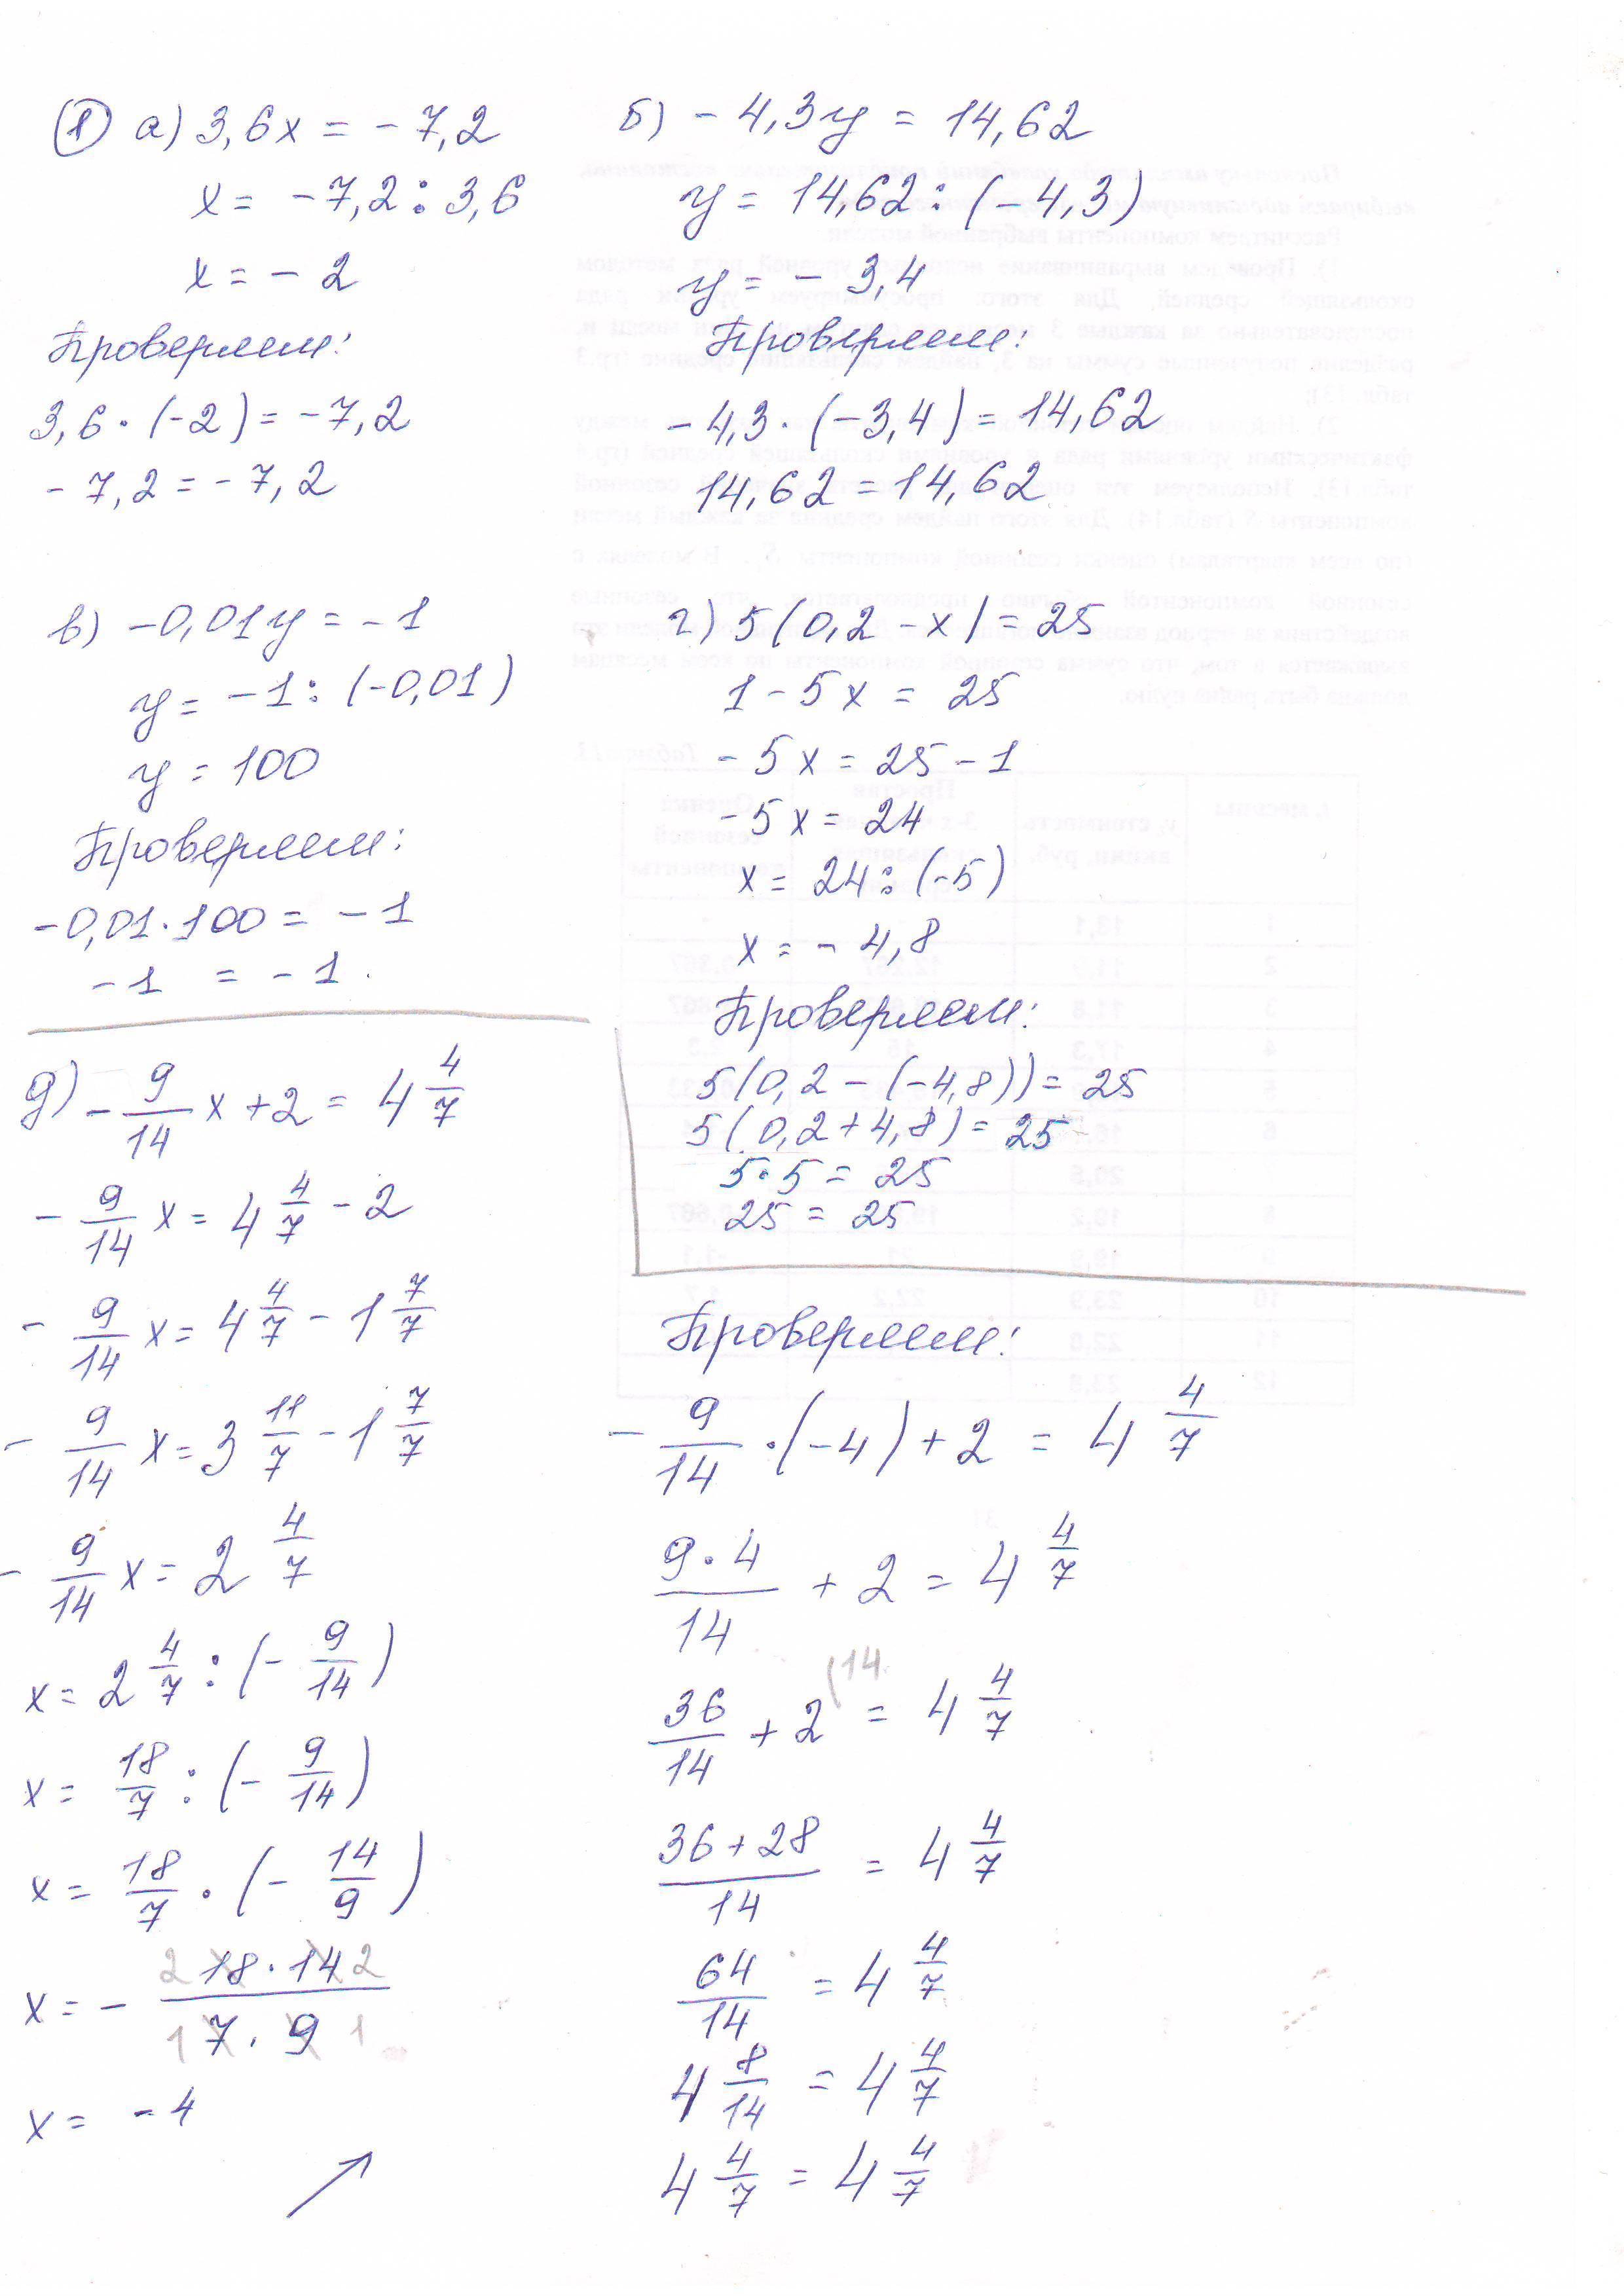 ① а) 3,6x = - 7,2
x = - 7,2 : 3,6
x = - 2
Проверяем:
3,6 · (-2) = - 7,2
- 7,2 = - 7,2
б) - 4,3y = 14,62
y = 14,62 : (- 4,3)
y = - 3,4
Проверяем:
- 4,3 · (-3,4) = 14,62
14,62 = 14,62
в) -0,01y = - 1
y = -1 : (-0,01)
y = 100
Проверяем:
-0,01 · 100 = - 1
- 1 = - 1.
г) 5(0,2 - x) = 25
1 - 5x = 25
- 5x = 25 - 1
-5x = 24
x = 24 : (-5)
x = - 4,8
Проверяем:
5(0,2 - (-4,8)) = 25
5(0,2 + 4,8) = 25
5 · 5 = 25
25 = 25
д) - 9/14 x + 2 = 4 4/7
- 9/14 x = 4 4/7 - 2
- 9/14 x = 4 4/7 - 1 7/7
- 9/14 x = 3 11/7 - 1 7/7
- 9/14 x = 2 4/7
x = 2 4/7 : (- 9/14)
x = 18/7 : (- 9/14)
x = 18/7 · (- 14/9)
2 2
x = - 18 · 14 / 7 · 9
1 1
x = - 4
Проверяем:
- 9/14 · (-4) + 2 = 4 4/7
9 · 4/14 + 2 = 4 4/7
36/14 + 2 (14 = 4 4/7
36 + 28/14 = 4 4/7
64/14 = 4 4/7
4 8/14 = 4 4/7
4 4/7 = 4 4/7